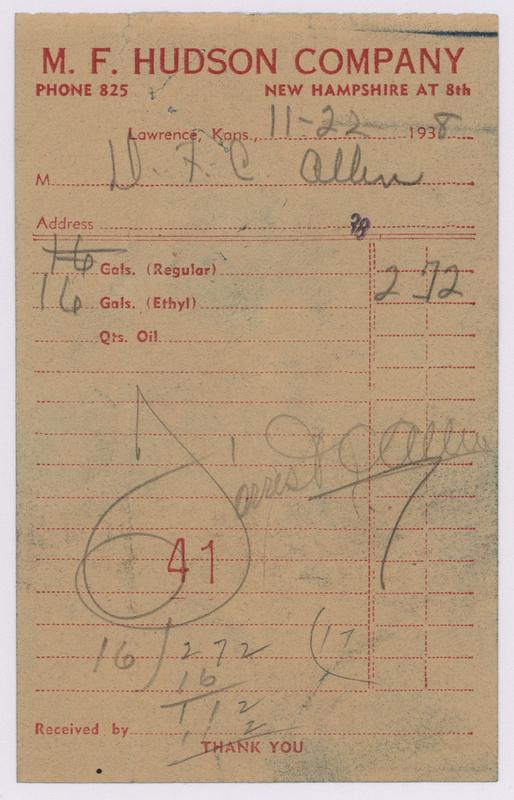 M. F. HUDSON COMPANY
PHONE 825 NEW HAMPSHIRE AT 8th
Lawrence, Kans., 11-22 1938
M D. F. C. Allen
Address 28
16 Gals. (Regular)
16 Gals. (Ethyl) 2 72
Qts. Oil
Forrest C Allen
41
16 272 (17
16
112
112
Received by
THANK YOU